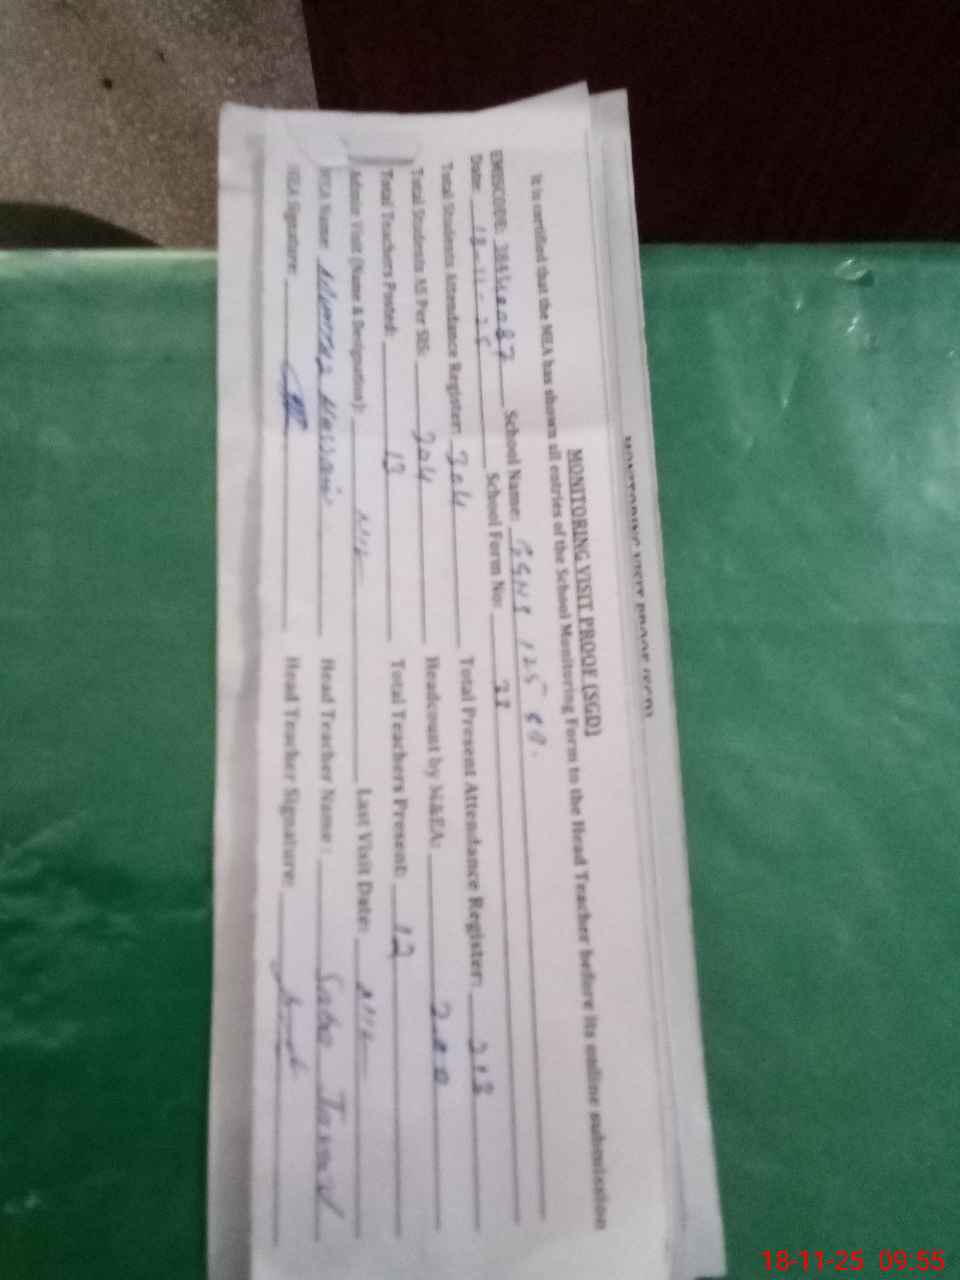 MONITORING VISIT PROOF (SGD)
MONITORING VISIT PROOF (SGD)
It is certified that the MEA has shown all entries of the School Monitoring Form to the Head Teacher before its online submission
EMISCODE: School Name: 125
Date: 18-11-25 School Form No: 28
Total Students Attendance Register: 304 Total Present Attendance Register:
Total Students AS Per SIS: 304 Headcount by M&EA: 200
Total Teachers Posted: 13 Total Teachers Present: 12
Admin Visit (Name & Designation): Nil Last Visit Date: Nil
MEA Name: Mumtaz Hassain Head Teacher Name: Saba Javed
MEA Signature: Head Teacher Signature:
18-11-25 09:55